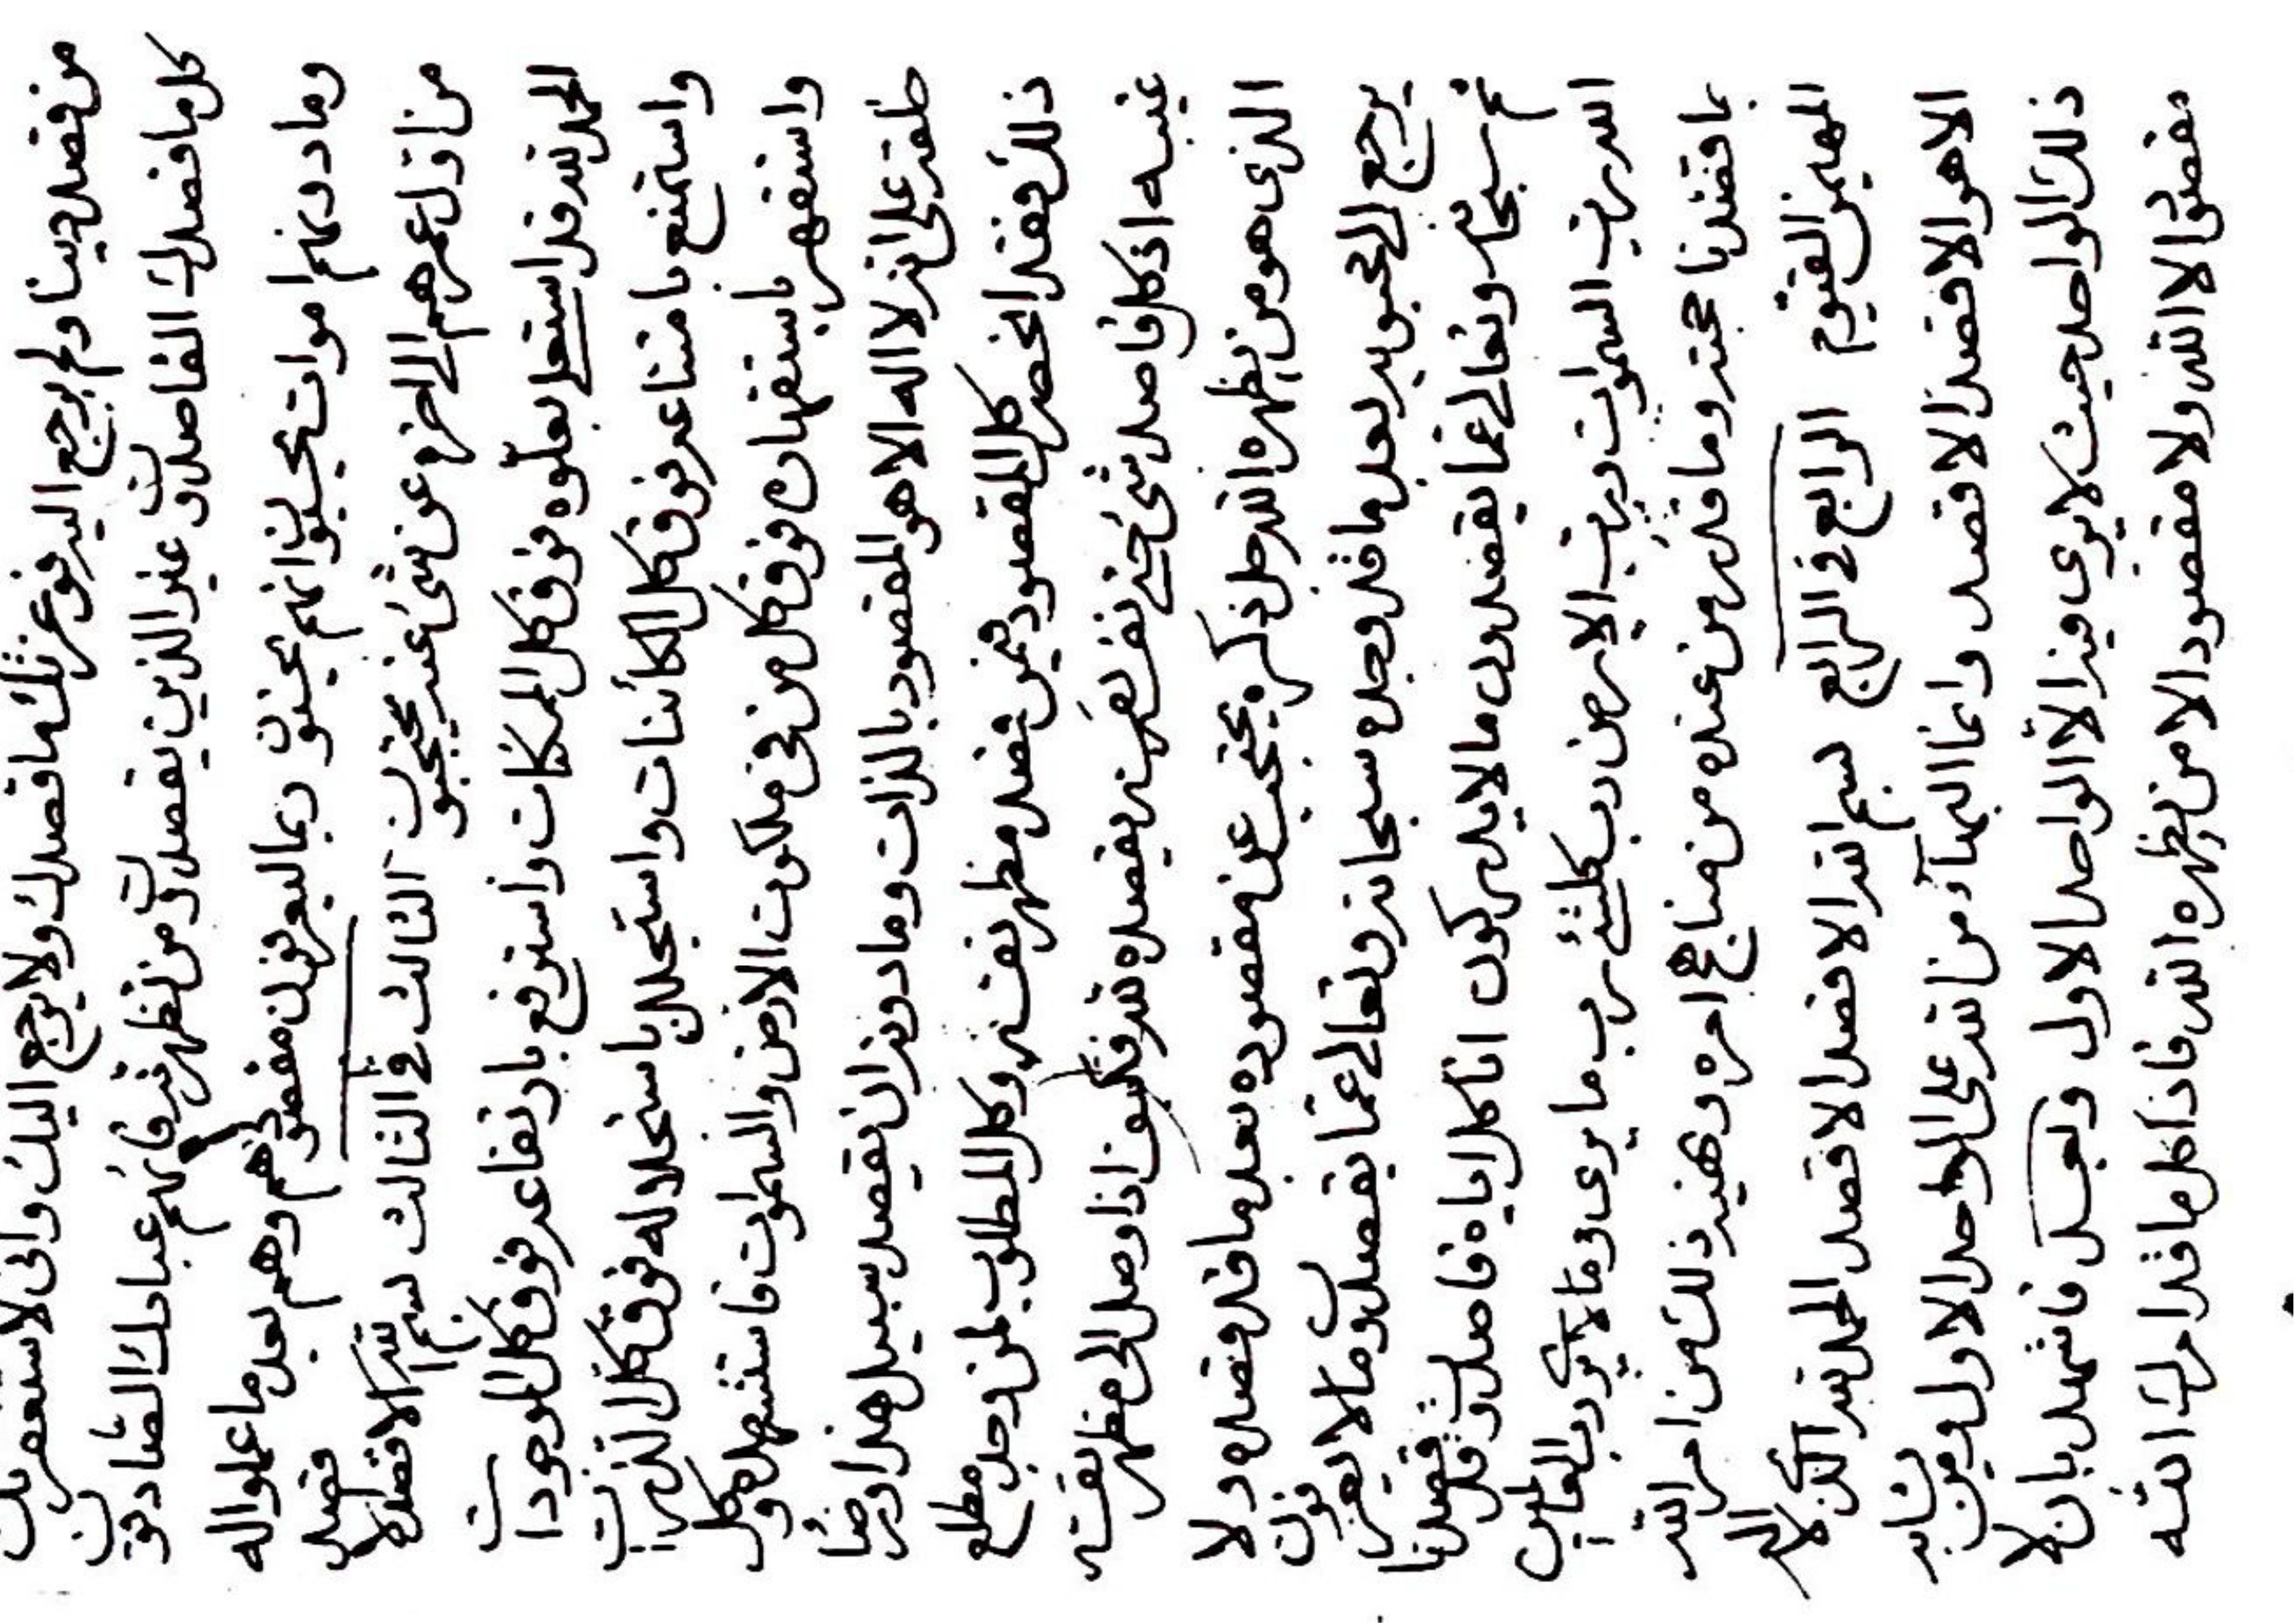 من قصد دينا ولم يرجع اليه فوعزتك ما قصدك ولا يرجع اليك وانى لاستغفرنك
كل ما قصدك القاصدون غير الذين يقصدون من تظهرنه فانهم عبادك الصادقون
وما دونهم اموات انهم مقصودهم وهم بعد ما عملوا له
من اول عمرهم الى اخره عن شئ عنه يحتجبون الثالث فى الثالث بسم الله الاقصد الاقصد
الحمد لله قد استعلى بعلوه فوق كل الممكنات واسترفع بارتفاعه فوق كل الموجودات
واستمنع بامتناعه فوق كل الكائنات واستجلل باستجلاله فوق كل الذرات
واستقهر باستقهاره فوق كل من فى ملكوت الارض والسموات فاستشهده وكل
خلقه على انه لا اله الا هو المقصود بالذات وما دونه ان يقصد سبيل هذا
ذلك فقد انحصر كل المقصود فيمن قصد مظهر نفسه وكل المطلوب لمن وجد مطلع
غيبه اذ كل قاصد شئ حين يقصده لله فكيف اذا وصل الى مظهر نفسه
الذى هو من يظهره الله جل ذكره يحتجب عن مقصوده بعد ما قد قصده ولا
يرجع الى محبوبه بعد ما قد وجده سبحانه وتعالى عما يقصدون وما لا يعرفون
ثم سبحانه وتعالى عما يقصدون ما لا يدركون انا كل اياه قاصدون قد قصدنا
الله رب السموات ورب الارض رب كلشئ رب ما يرى وما لا يرى رب العالمين
بما قصدنا حجته وما قد نزل من عنده من مناهج امره ذلك من امر الله
المهيمن القيوم الرابع فى الرابع بسم الله الاقصد الاقصد الحمد لله الذى لا اله
الا هو الاقصد الاقصد وانما البهاء من الله على الواحد الاول ومن يشابه
ذلك الواحد حيث لا يرى فيه الا الواحد الاول وبعد فاشهد بان لا
مقصود الا الله ولا مقصود الا من يظهره الله فاذا كل ما قد امرك الله